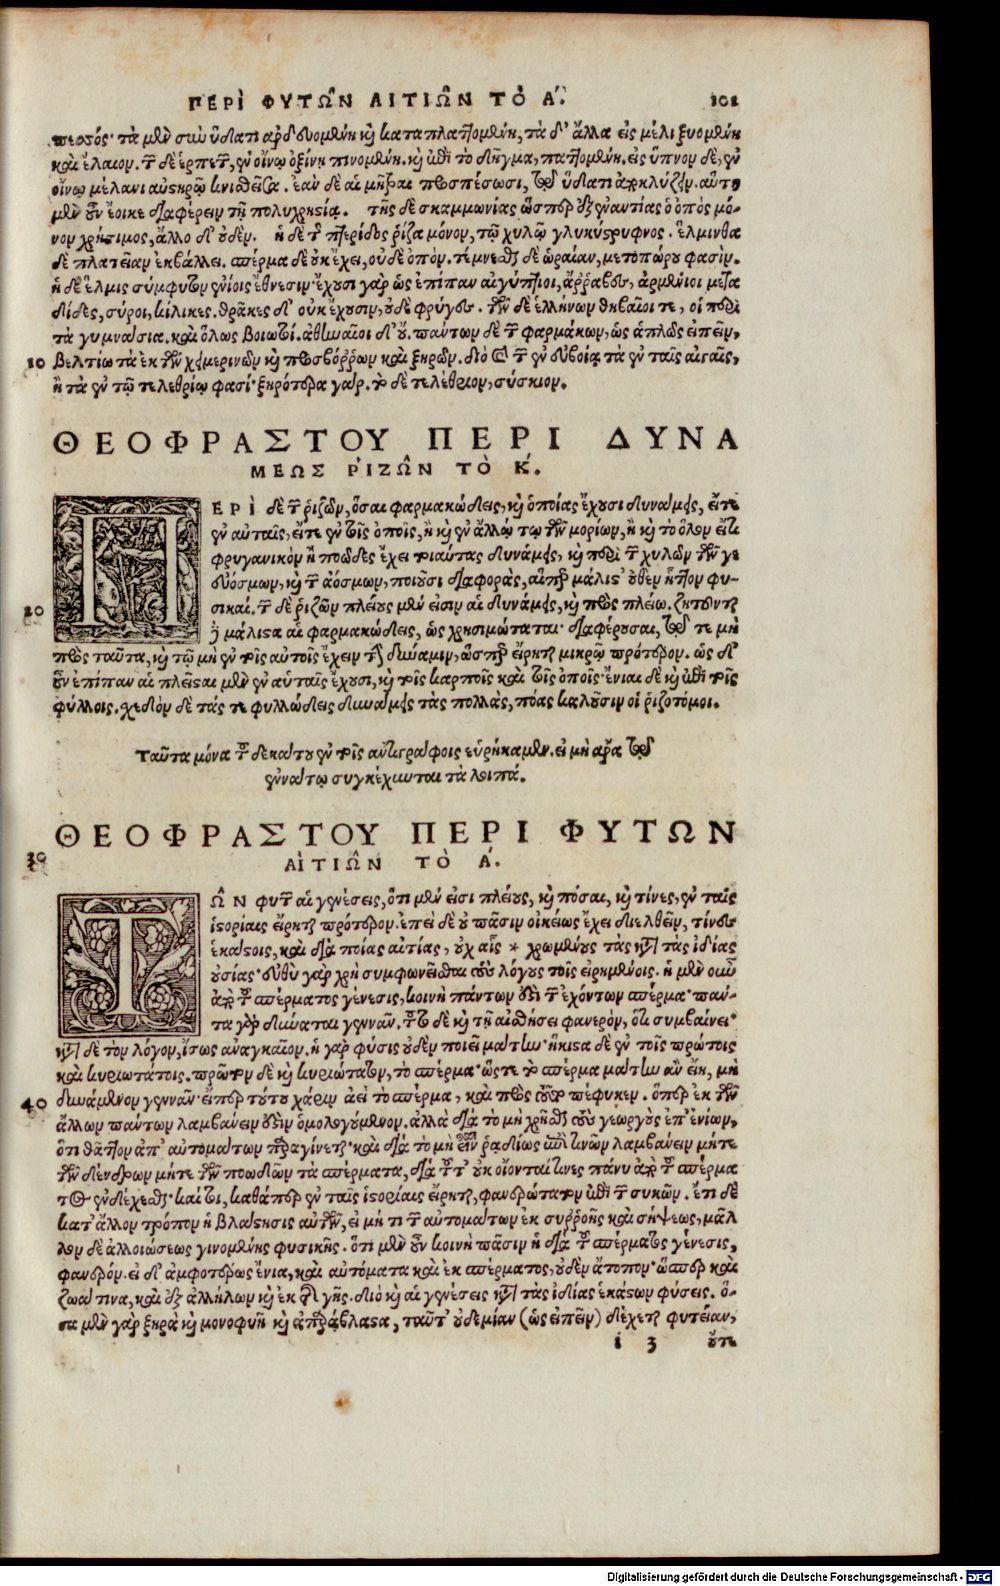 ΠΕΡῚ ΦΥΤΩ͂Ν ΑΙΤΙΩ͂Ν ΤῸ Α´. 101
τὰ μὲν σὺν ὕδατι καὶ καταπλαττομένη, τὰ δ' ἄλλα εἰς μέλι ξυομένη
καὶ ἔλαιον. τῶν δὲ ἑρπετῶν, ἐν οἴνῳ ὀξίνη πινομένη. καὶ ἐπὶ τὸ δῆγμα, παττομένη. εἰς ὕπνον δὲ, ἐν
οἴνῳ μέλανι αὐστηρῷ κνισθεῖσα. ἐὰν δὲ αἱ μῆτραι προσπέσωσι, τῷ ὕδατι διακλύζειν. αὕτη
μὲν οὖν ἔοικε διαφέρειν τῇ πολυχρηστίᾳ. τῆς δὲ σκαμμωνίας ὥσπερ ἐξ ἐναντίας ὁ ὀπὸς μό-
νον χρήσιμος, ἄλλο δ' οὐδέν. ἡ δὲ τῆς πτερίδος ῥίζα μόνον, τῷ χυλῷ γλυκύστρυφνος. ἕλμινθα
δὲ πλατεῖαν ἐκβάλλει. σπέρμα δὲ οὐκ ἔχει, οὐδὲ ὀπόν. τέμνεσθαι δὲ ὡραίαν, μετοπώρου φασίν.
ἡ δὲ ἕλμις σύμφυτον ἐνίοις ἔθνεσιν· ἔχουσι γὰρ ὡς ἐπίπαν αἰγύπτιοι, ἄῤῥαβες, ἀρμένιοι
δίδες, σύροι, κίλικες. θρᾷκες δ' οὐκ ἔχουσιν, οὐδὲ φρύγες. τῶν δὲ ἑλλήνων θηβαῖοι τε, οἱ περὶ
τὰ γυμνάσια. καὶ ὅλως βοιωτοί. ἀθηναῖοι δ' οὔ. πάντων δὲ τῶν φαρμάκων, ὡς ἁπλῶς εἰπεῖν,
10 βελτίω τὰ ἐκ τῶν χειμερινῶν καὶ προσβόῤῥων καὶ ξηρῶν. διὸ καὶ τῶν ἐν εὐβοίᾳ τὰ ἐν ταῖς αἰγαῖς,
ἢ τὰ ἐν τῷ τελεθρίῳ φασί· ξηρότερα γάρ. τὸ δὲ τελέθριον, σύσκιον.
ΘΕΟΦΡΑΣΤΟΥ ΠΕΡΙ ΔΥΝΑ
ΜΕΩΣ ῬΙΖΩ͂Ν ΤῸ Κ´.
ΠΕΡῚ δὲ τῶν ῥιζῶν, ὅσαι φαρμακώδεις, καὶ ὁποίας ἔχουσι δυνάμεις, εἴτε
ἐν αὐταῖς, εἴτε ἐν τοῖς ὀποῖς, ἢ καὶ ἐν ἄλλῳ τῳ τῶν μορίων, ἢ καὶ τὸ ὅλον εἴτι
φρυγανικὸν ἢ ποῶδες ἔχει τοιαύτας δυνάμεις, καὶ περὶ τῶν χυλῶν τῶν τε
εὐόσμων, καὶ τῶν ἀόσμων, ποιοῦσι διαφορὰς, αἵπερ μάλιστ' οὐθὲν ἧττον φυ-
20 σικαί. τῶν δὲ ῥιζῶν πλείους μὲν εἰσιν αἱ δυνάμεις, καὶ πρὸς πλείω. ζητοῦνται
δὲ μάλιστα αἱ φαρμακώδεις, ὡς χρησιμώταται· διαφέρουσαι, τῷ τε μὴ
πρὸς ταῦτα, καὶ τῷ μὴ ἐν τοῖς αὐτοῖς ἔχειν τὴν δύναμιν, ὥσπερ εἴρηται μικρῷ πρότερον. ὡς δ'
οὖν ἐπίπαν αἱ πλεῖσται μὲν ἐν αὑταῖς ἔχουσι, καὶ τοῖς καρποῖς καὶ τοῖς ὀποῖς· ἔνιαι δὲ καὶ ἐπὶ τοῖς
φύλλοις. σχεδὸν δὲ τάς τε φυλλώδεις δυνάμεις τὰς πολλὰς, πόας καλοῦσιν οἱ ῥιζοτόμοι.
Ταῦτα μόνα τοῦ δεκάτου ἐν τοῖς ἀντιγράφοις εὑρήκαμεν. εἰ μὴ ἄρα τῷ
ἐννάτῳ συγκέχυνται τὰ λοιπά.
ΘΕΟΦΡΑΣΤΟΥ ΠΕΡΙ ΦΥΤΩΝ
30 ΑἸΤΙΩ͂Ν ΤῸ Α´.
ΤΩ͂Ν φυτῶν αἱ γενέσεις, ὅτι μὲν εἰσι πλείους, καὶ πόσαι, καὶ τίνες, ἐν ταῖς
ἱστορίαις εἴρηται πρότερον. ἐπεὶ δὲ οὐ πᾶσιν οἰκείως ἔχει διελθεῖν, τίνες
ἑκάστοις, καὶ διὰ ποίας αἰτίας, οὐχ αἷς * χρωμένους τὰς κατὰ τὰς ἰδίας
οὐσίας· εὐθὺ γὰρ χρὴ συμφωνεῖσθαι τοὺς λόγους τοῖς εἰρημένοις. ἡ μὲν οὖν
ἀπὸ τοῦ σπέρματος γένεσις, κοινὴ πάντων ἐστὶ τῶν ἐχόντων σπέρμα· πάν-
τα γὰρ δύναται γεννᾷν. τοῦτο δὲ καὶ τῇ αἰσθήσει φανερὸν, ὅτι συμβαίνει·
κατὰ δὲ τὸν λόγον, ἴσως ἀναγκαῖον. ἡ γὰρ φύσις οὐδὲν ποιεῖ μάτην· ἥκιστα δὲ ἐν τοῖς πρώτοις
καὶ κυριωτάτοις. πρῶτον δὲ καὶ κυριώτατον, τὸ σπέρμα· ὥστε τὸ σπέρμα μάτην ἂν εἴη, μὴ
40 δυνάμενον γεννᾷν· εἴπερ τούτου χάριν ἀεὶ τὸ σπέρμα, καὶ πρὸς τοῦτο πέφυκεν. ὅπερ ἐκ τῶν
ἄλλων πάντων λαμβάνειν ἐστὶν ὁμολογούμενον. ἀλλὰ διὰ τὸ μὴ χρῆσθαι τοὺς γεωργοὺς ἐπ' ἐνίων,
ὅτι θᾶττον ἀπ' αὐτομάτων παραγίνεται· καὶ διὰ τὸ μὴ εἶναι ῥᾳδίως ἐπὶ τινῶν λαμβάνειν μήτε
τῶν δένδρων μήτε τῶν ποωδῶν τὰ σπέρματα, διὰ τοῦτ' οὐκ οἴονταί τινες πάνυ ἀπὸ τοῦ σπέρμα
τος ἐνδέχεσθαι· καίτοι, καθάπερ ἐν ταῖς ἱστορίαις εἴρηται, φανερώτατον ἐπὶ τῶν συκῶν. ἔτι δὲ
κατ' ἄλλον τρόπον ἡ βλάστησις αὐτῶν, εἰ μή τι τῶν αὐτομάτων ἐκ συῤῥοῆς καὶ σήψεως, μᾶλ
λον δὲ ἀλλοιώσεως γινομένης φυσικῆς. ὅτι μὲν οὖν κοινὴ πᾶσιν ἡ διὰ τοῦ σπέρματος γένεσις,
φανερόν. εἰ δ' ἀμφοτέρως ἔνια, καὶ αὐτόματα καὶ ἐκ σπέρματος, οὐδὲν ἄτοπον· ὥσπερ καὶ
ζῶά τινα, καὶ ἐξ ἀλλήλων καὶ ἐκ τῆς γῆς. διὸ καὶ αἱ γενέσεις κατὰ τὰς ἰδίας ἑκάστων φύσεις. ὅ-
σα μὲν γὰρ ξηρὰ καὶ μονοφυῆ καὶ ἀπαράβλαστα, ταῦτ' οὐδεμίαν (ὡς εἰπεῖν) δέχεται φυτείαν,
i 3 οὔτε
Digitalisierung gefördert durch die Deutsche Forschungsgemeinschaft - DFG